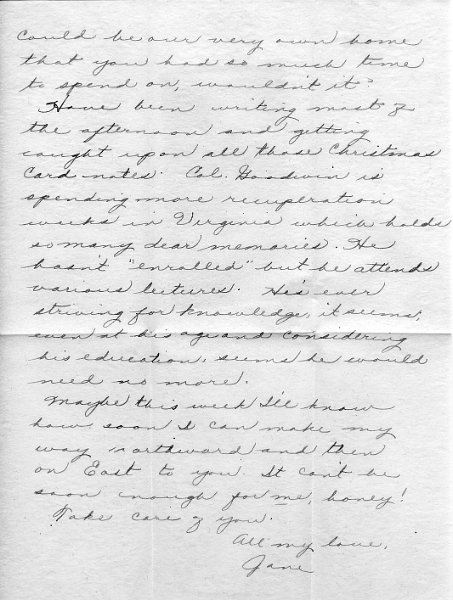 could be our very own home
that you had so much time
to spend on, wouldn't it?
Have been writing most of
the afternoon and getting
caught up on all those Christmas
card notes. Col. Goodwin is
spending more recuperation
weeks in Virginia which holds
so many dear memories. He
hasn't "enrolled" but he attends
various lectures. He's ever
striving for knowledge, it seems,
even at his age and considering
his education, seems he would
need no more.
Maybe this week I'll know
how soon I can make my
way northward and then
on East to you. It can't be
soon enough for me, honey!
Take care of you.
All my love,
Jane